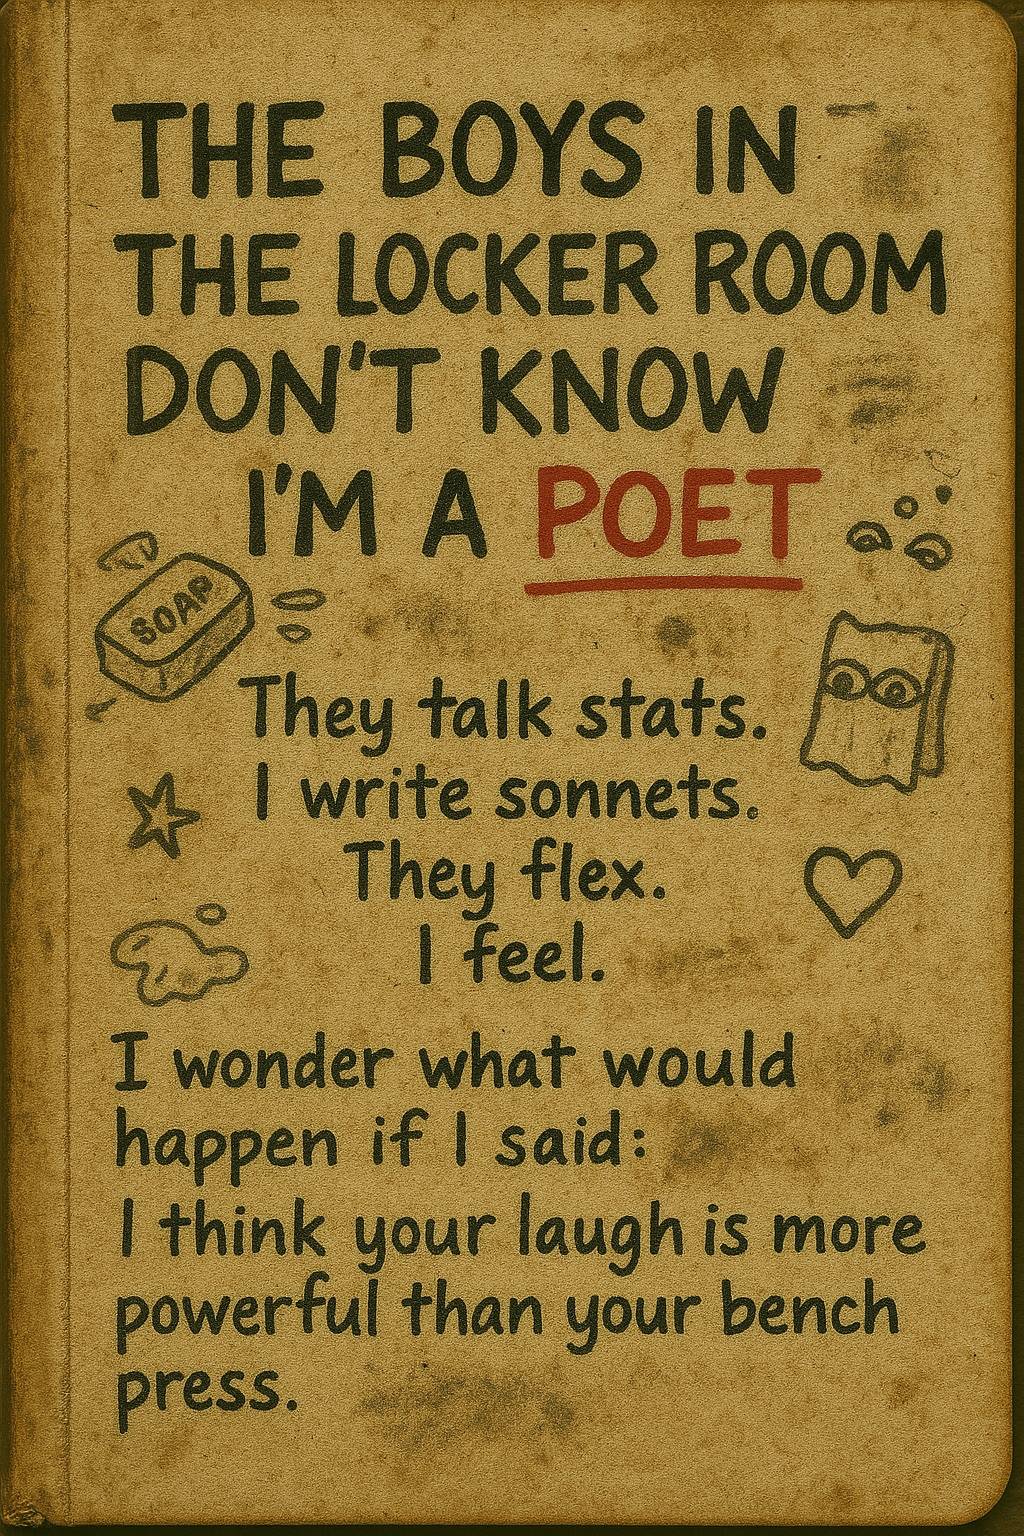 THE BOYS IN
THE LOCKER ROOM
DON'T KNOW
I'M A POET
SOAP
They talk stats.
I write sonnets.
They flex.
I feel.
I wonder what would
happen if I said:
I think your laugh is more
powerful than your bench
press.